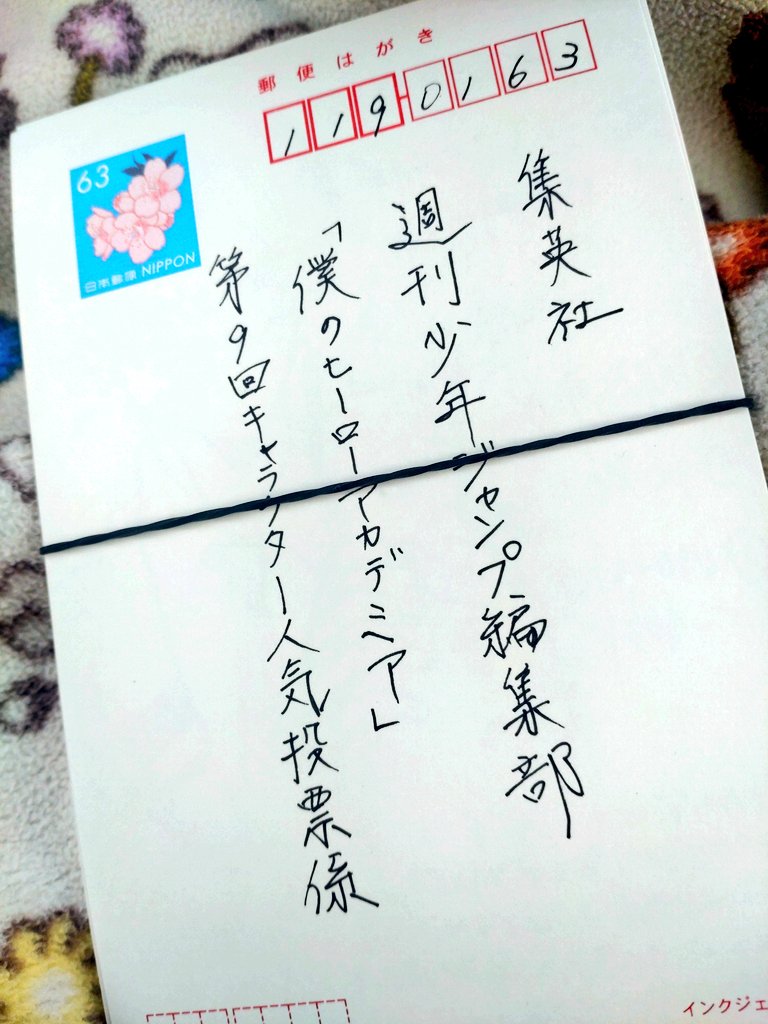 郵便はがき
1190163
63
日本郵便 NIPPON
集英社
週刊少年ジャンプ編集部
「僕のヒーローアカデミア」
第9回キャラクター人気投票係
インクジェ